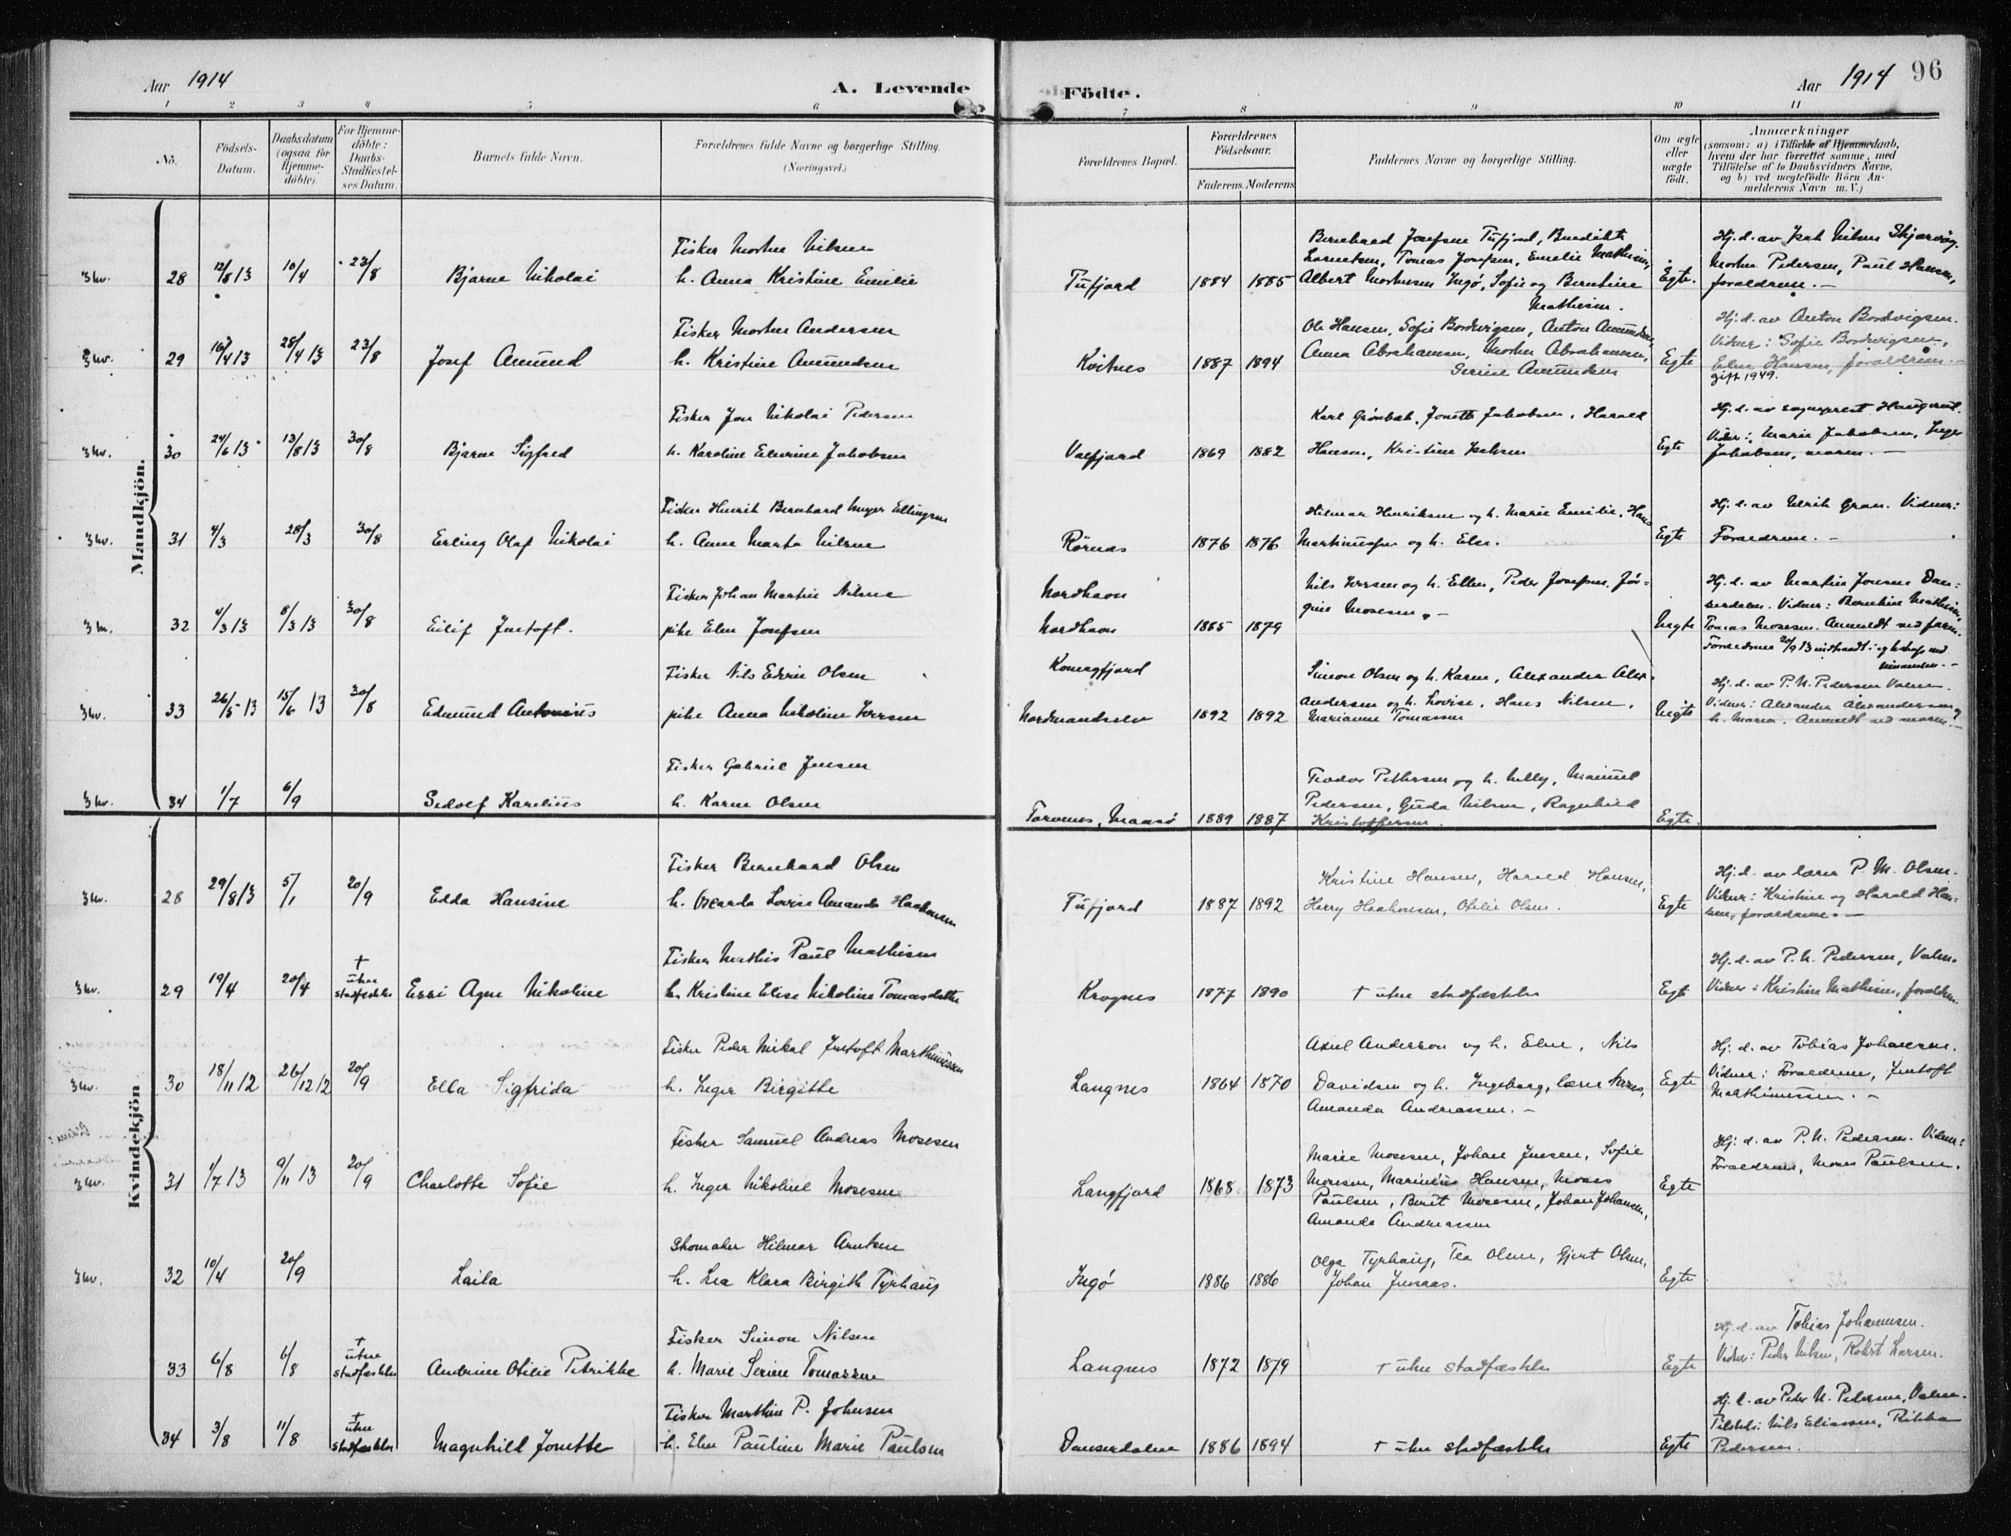 Aar 1914
A. Levende
Födte.
Aar 1914
96
1 2 3 4 5 6 7 8 9 10 11
No.
Födsels-
Datum.
Daabsdatum
(ogsaa for
Hjemme-
döbte).
For Hjemme-
döbte:
Daabs-
Stadfæstel-
ses Datum.
Barnets fulde Navn.
Forældrenes fulde Navne og borgerlige Stilling.
(Næringsvei.)
Forældrenes Bopæl.
Forældrenes
Födselsaar.
Faderens. Moderens
Faddernes Navne og borgerlige Stilling.
Om ægte
eller
uægte
födt.
Anmærkninger
(saasom: a) i Tilfælde af Hjemmedaab,
hvem der har forrettet samme, med
Tilföielse af to Daabsvidners Navne,
og b) ved uægtefödte Börn An-
melderens Navn m. V.)
Mandkjön.
Fisker Morten Nilsen
28 12/8 13 10/4 23/8 Bjarne Nikolai h. Anna Kristine Emilie
Tufjord 1884 1885
Bernhard Josefsen Tufjord, Benedikte
Tomas Josefsen, Emelie Mathisen,
Albert Mortensen Ingø, Sofie og Berntine
Mathisen.
Egte.
Hj. d. av Isak Nilsen
Morten Pedersen, Paul Hansen,
foraeldrene. —
Fisker Morten Andersen
29 16/4 13 28/4 13 23/8 Josef Amund h. Kristine Amundsen
Kvitnes 1887 1894
Ole Hansen, Sofie Bordvigsen, Anton Amundsen,
Anna Abrahamsen, Morten Abrahamsen,
Serine Amundsen
Egte
Hj. d. av Anton Bordvigsen.
Vidner: Sofie Bordvigsen,
Hansen, foraeldrene. —
gift 1949.
Fisker Jon Nikolai Pedersen
30 24/6 13 13/8 13 30/8 Bjarne Sigfred h. Karoline Elverine Jakobsen
1869 1882
Karl Grønbek, Jonette Jakobsen, Harald
Hansen, Kristine
Egte
Hj. d. av sogneprest
Vidner: Marie Jakobsen, Inger
Jakobsen, moren. —
Fisker Henrik Bernhard Meyer Ellingsen
31 4/3 28/3 30/8 Erling Olaf Nikolai h. Anne Marta Nilsen
1876 1876
Hilmar Henriksen og h. Marie Emilie, Hans
og h. Elen.
Egte
Hj. d. av Ulrik Gran. Vidner:
Foraeldrene. —
Fisker Johan Martin Nilsen
32 4/3 13 8/3 13 30/8 Eilif Jentoft. pike Elen Josefsen
Nordhavn
Nordhavn 1885 1879
Nils Iversen og h. Ellen, Peder Josefsen, Jør-
gine Mosesen. —
Uegte
Hj. d. av Martin Jensen Dan-
serdalen. Vidner: Berntine Mathisen,
Tomas Mosesen. Anmeldt ved faren.
Fisker Nils Edvin Olsen
33 26/5 13 15/6 13 30/8 Edmund Antonius pike Anna Nikoline Iversen
Kamøyfjord
1892 1892
Simon Olsen og h. Karen, Alexander Alex-
andersen og h. Lovise, Hans Nilsen,
Marianne Tomassen
Uegte
Hj. d. av P. N. Pedersen Valen.
Vidner: Alexander Alexandersen og
h. Maren. Anmeldt ved moren. —
Fisker Gabriel Jensen
34 1/7 6/9 Sedolf Karelius h. Karen Olsen
Torvenes, Maasø 1889 1887
Teodor Pettersen og h. Nelly, Manuel
Pedersen, Guda Nilsen, Ragnhild
Kristoffersen.
Egte.
Kvindekjön
Fisker Bernhard Olsen
28 29/8 13 5/1 20/9 Edda Hansine h. Oscarda Lovise Amanda Haakonsen
Tufjord 1887 1892
Kristine Hansen, Harald Hansen,
Harry Haakonsen, Otilie Olsen.
Egte
Hj. d. av lærer P. M. Olsen.
Vidner: Kristine og Harald Han-
sen, foraeldrene. —
Fisker Mathis Paul Mathisen
29 19/4 20/4 † uten stadfæstelse Agne Nikoline h. Kristine Elise Nikoline Tomasdatter
Krognes 1877 1890
† uten stadfæstelse
Egte
Hj. d. av P. N. Pedersen, Valen.
Vidner: Kristine Mathisen, foraeldrene.
Fisker Peder Nikal Jentoft Marthinussen
30 18/11 12 26/12 12 20/9 Ella Sigfrida h. Inger Birgitte
Langnes 1864 1870
Axel Anderson og h. Elen, Nils
Davidsen og h. Ingeborg, lærer
Amanda Andreassen. —
Egte
Hj. d. av Tobias Johansen.
Vidner: Foraeldrene, Jentoft
Marthinussen. —
Fisker Samuel Andreas Mosesen
31 1/7 13 9/11 13 20/9 Charlotte Sofie h. Inger Nikoline Mosesen
Langfjord 1868 1873
Marie Mosesen, Johan Jensen, Sofie
Mosesen, Marinius Hansen, Moses
Paulsen, Berit Mosesen, Johan Johansen,
Amanda Andreassen
Egte
Hj. d. av P. N. Pedersen. Vidner:
Foraeldrene, Moses Paulsen.
Skomaker Hilmar Arntsen
32 10/4 20/9 Laila h. Lea Klara Birgith Tyrhaug
Ingø 1886 1886
Olga Tyrhaug, Tea Olsen, Gjert Olsen,
Johan
Egte
Fisker Simon Nilsen
33 6/8 6/8 † uten stadfæstelse Andrine Otilie Petrikke h. Marie Serine Tomassen
Langnes 1872 1879
† uten stadfæstelse
Egte
Hj. d. av Tobias Johannesen.
Vidner: Peder Nilsen, Robert Larsen.
Fisker Marthin P. Johnsen
34 3/8 11/8 † uten stadfæstelse Magnhill Jonette h. Elen Pauline Marie Paulsen
Danserdalen 1886 1894
† uten stadfæstelse
Egte
Hj. d. av Peder N. Pedersen, Valen.
Nils Eliassen, Rikka
Pedersen.